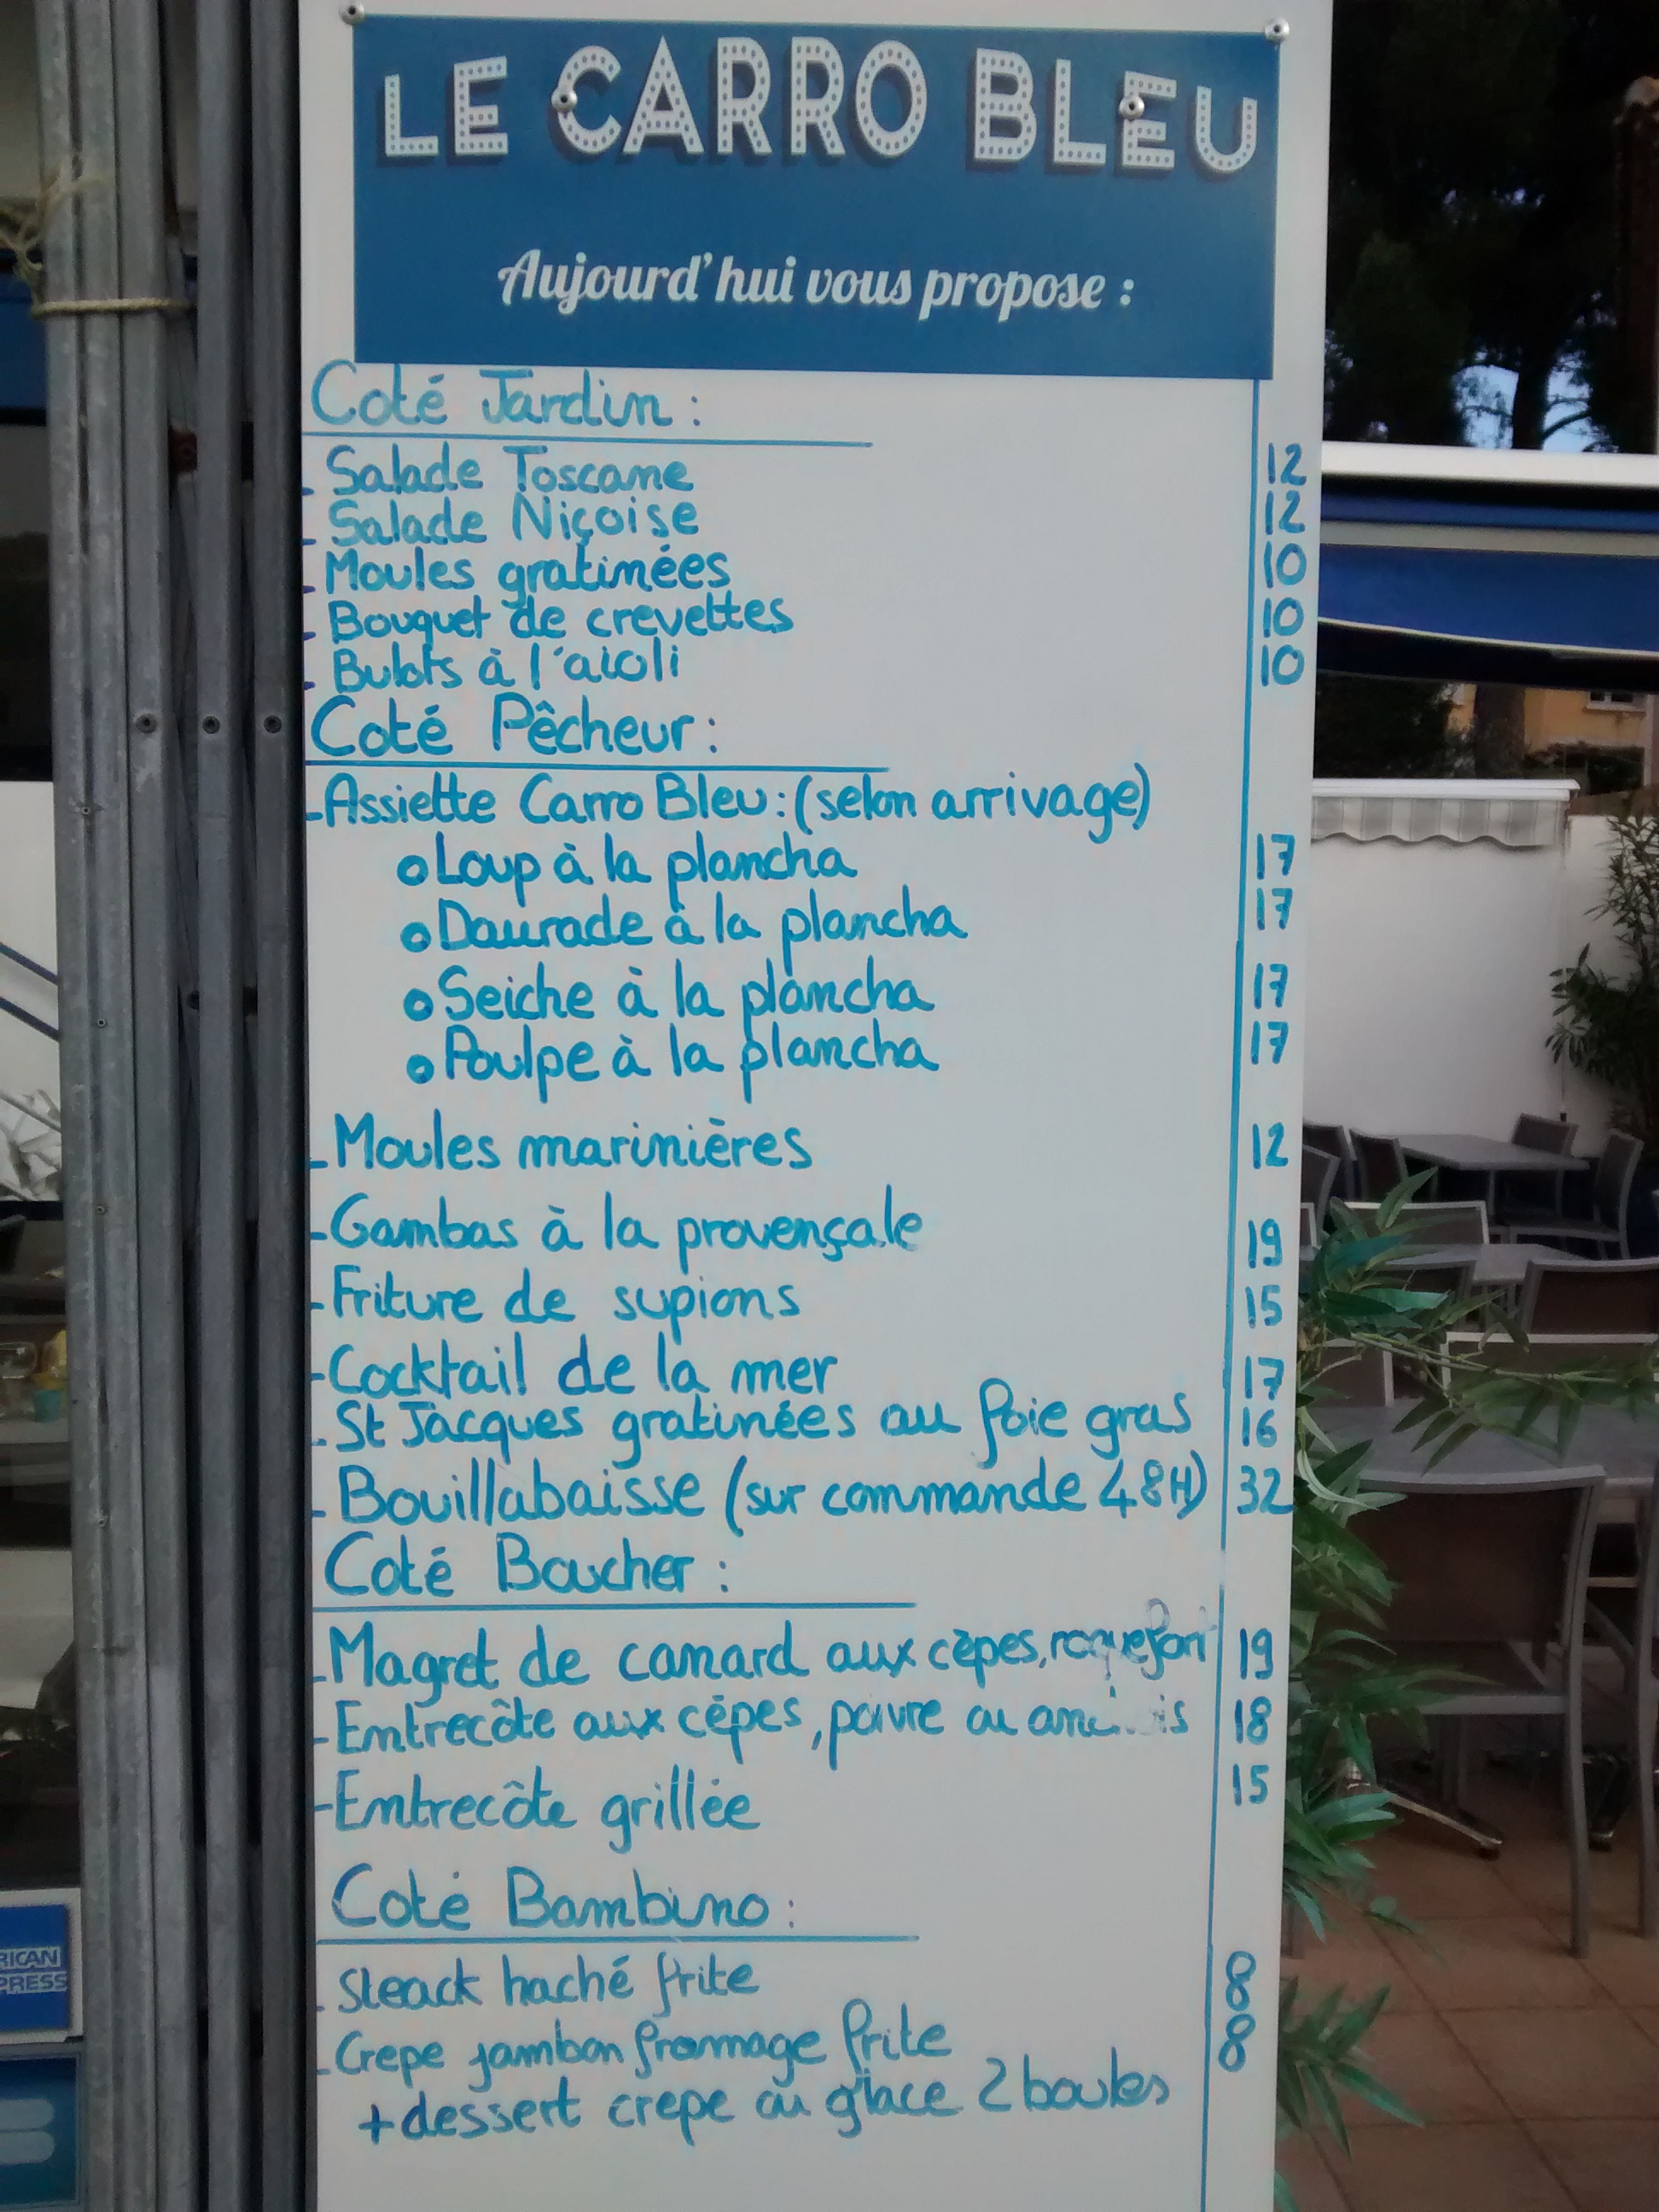 LE CARRO BLEU
Aujourd'hui vous propose :
Coté Jardin :
- Salade Toscane 12
- Salade Niçoise 12
- Moules gratinées 10
- Bouquet de crevettes 10
- Bulots à l'aioli 10
Coté Pêcheur :
- Assiette Carro Bleu : (selon arrivage)
o Loup à la plancha 17
o Daurade à la plancha 17
o Seiche à la plancha 17
o Poulpe à la plancha 17
- Moules marinières 12
- Gambas à la provençale 19
- Friture de supions 15
- Cocktail de la mer 17
- St Jacques gratinées au foie gras 16
- Bouillabaisse (sur commande 48H) 32
Coté Boucher :
- Magret de canard aux cèpes, roquefort 19
- Entrecôte aux cépes, poivre ou 18
- Entrecôte grillée 15
Coté Bambino :
- Steack haché frite 8
- Crepe jambon fromage frite 8
+ dessert crepe ou glace 2 boules
RICAN
PRESS